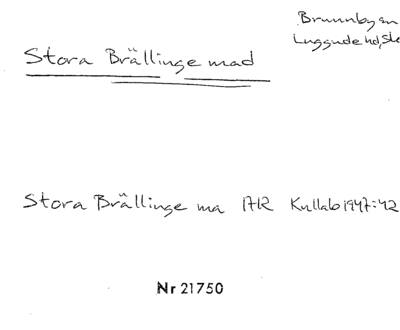 Brunnby sn
Luggude hd, Sk
Stora Brällinge mad
Stora Brällinge ma 1712 Kullab 1947:42
Nr 21750